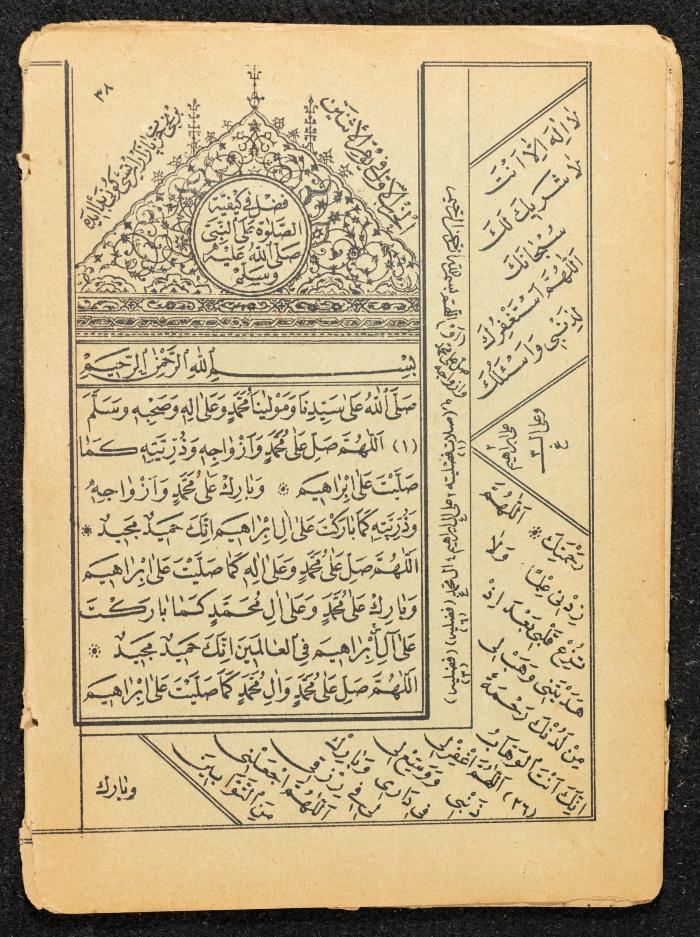 ٣٨
فضل وكيفية
الصلوة على النبى
صلى الله عليه
وسلم
بسم الله الرحمن الرحيم
صلى الله على سيدنا ومولينا محمد وعلى اله وصحبه وسلم
(١) اللهم صل على محمد وازواجه وذريته كما
صليت على ابراهيم * وبارك على محمد وازواجه
وذريته كما باركت على ال ابراهيم انك حميد مجيد *
اللهم صل على محمد وعلى اله كما صليت على ابراهيم
وبارك على محمد وعلى ال محمد كما باركت
على ال ابراهيم فى العالمين انك حميد مجيد *
اللهم صل على محمد وال محمد كما صليت على ابراهيم
وبارك
لا اله الا انت
لا شريك لك
سبحانك
اللهم استغفرك
لذنبى واسئلك
على ابراهيم
وعلى ال
برحمتك * اللهم
زدنى علما ولا
تزغ قلبى بعد اذ
هديتنى وهب لى
من لدنك رحمة
انك انت الوهاب
(٢٦) اللهم اغفر لى
ذنبى ووسع لى
فى دارى وبارك
لى فى رزقى
اللهم اجعلنى
من التوابين